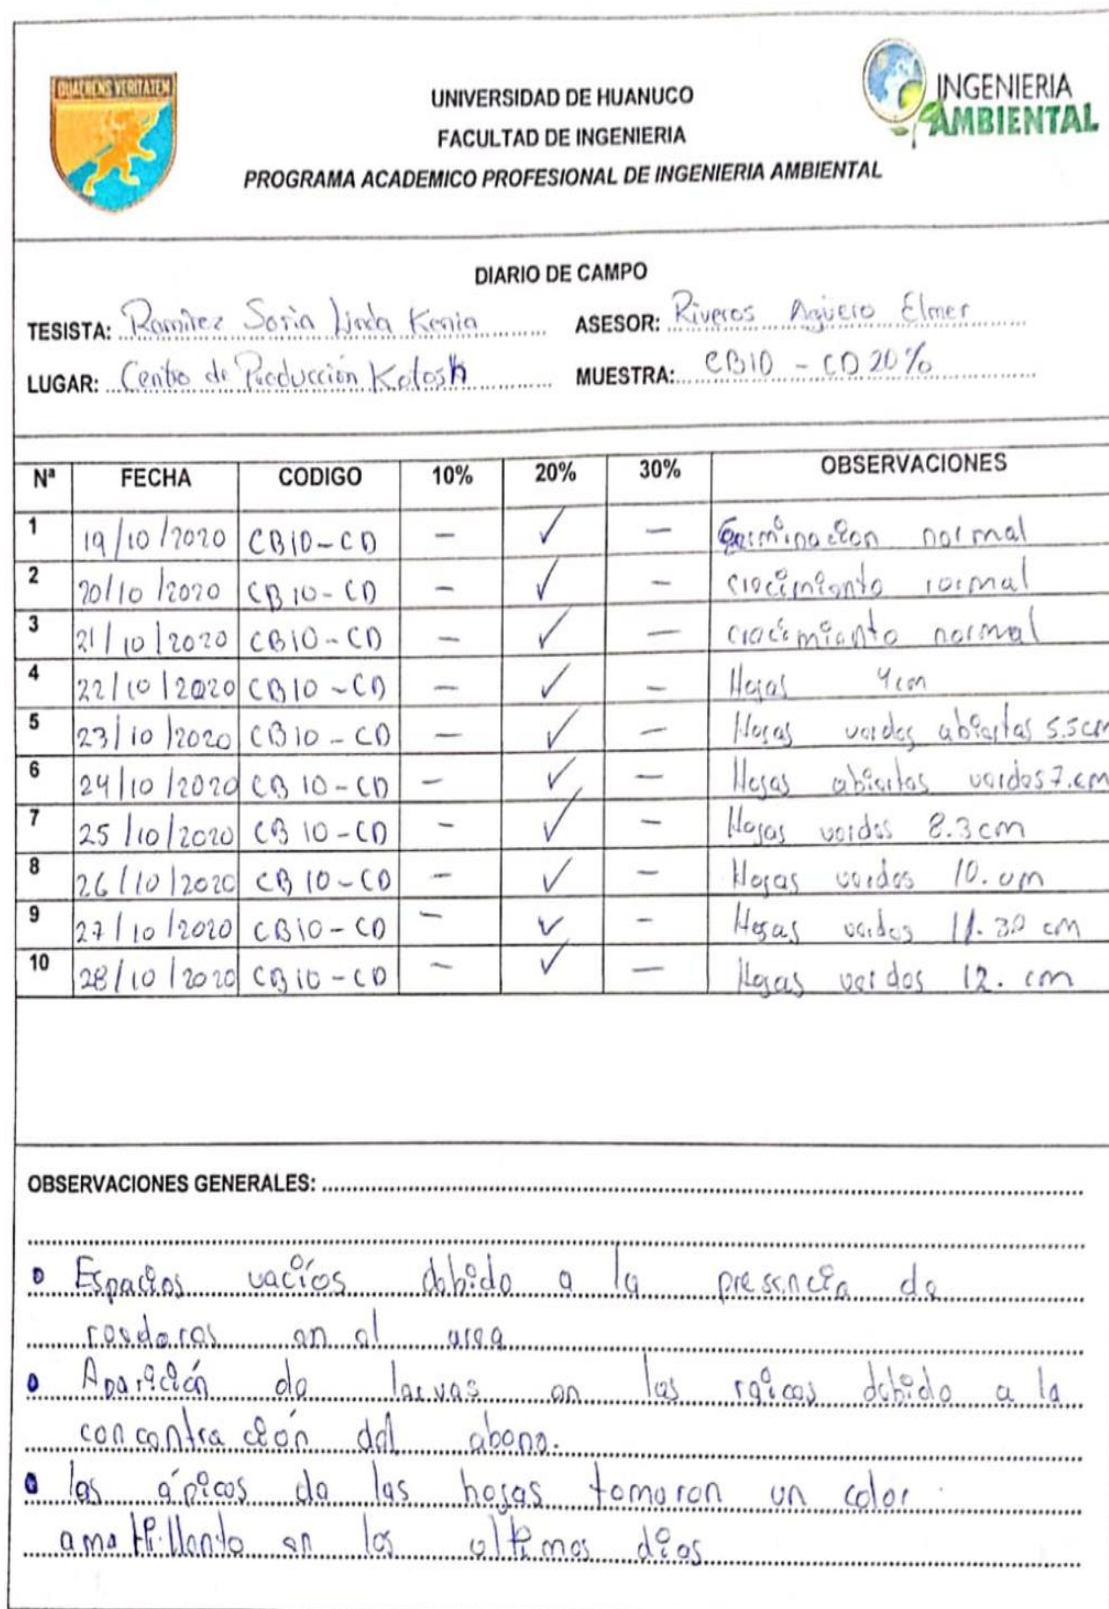 QUAERENS VERITATEM
UNIVERSIDAD DE HUANUCO
FACULTAD DE INGENIERIA
PROGRAMA ACADEMICO PROFESIONAL DE INGENIERIA AMBIENTAL
INGENIERIA
AMBIENTAL
DIARIO DE CAMPO
TESISTA: Ramirez Soria Linda Kenia ASESOR: Riveros Agüero Elmer
LUGAR: Centro de Producción Kotosh MUESTRA: CB10 - CD 20%
Nª FECHA CODIGO 10% 20% 30% OBSERVACIONES
1 19/10/2020 CB10-CD - ✓ - Germinacion normal
2 20/10/2020 CB10-CD - ✓ - crecimiento normal
3 21/10/2020 CB10-CD - ✓ - crecimiento normal
4 22/10/2020 CB10-CD - ✓ - Hojas 4cm
5 23/10/2020 CB10-CD - ✓ - Hojas verdes abiertas 5.5cm
6 24/10/2020 CB10-CD - ✓ - Hojas abiertas verdes 7.cm
7 25/10/2020 CB10-CD - ✓ - Hojas verdes 8.3cm
8 26/10/2020 CB10-CD - ✓ - Hojas verdes 10.cm
9 27/10/2020 CB10-CD - ✓ - Hojas verdes 11.30 cm
10 28/10/2020 CB10-CD - ✓ - Hojas verdes 12. cm
OBSERVACIONES GENERALES:
• Espacios vacíos debido a la presencia de
roedores en el area
• Aparición de larvas en las raices debido a la
concentración del abono.
• las ápices de las hojas tomaron un color
amarillento en los ultimos dias